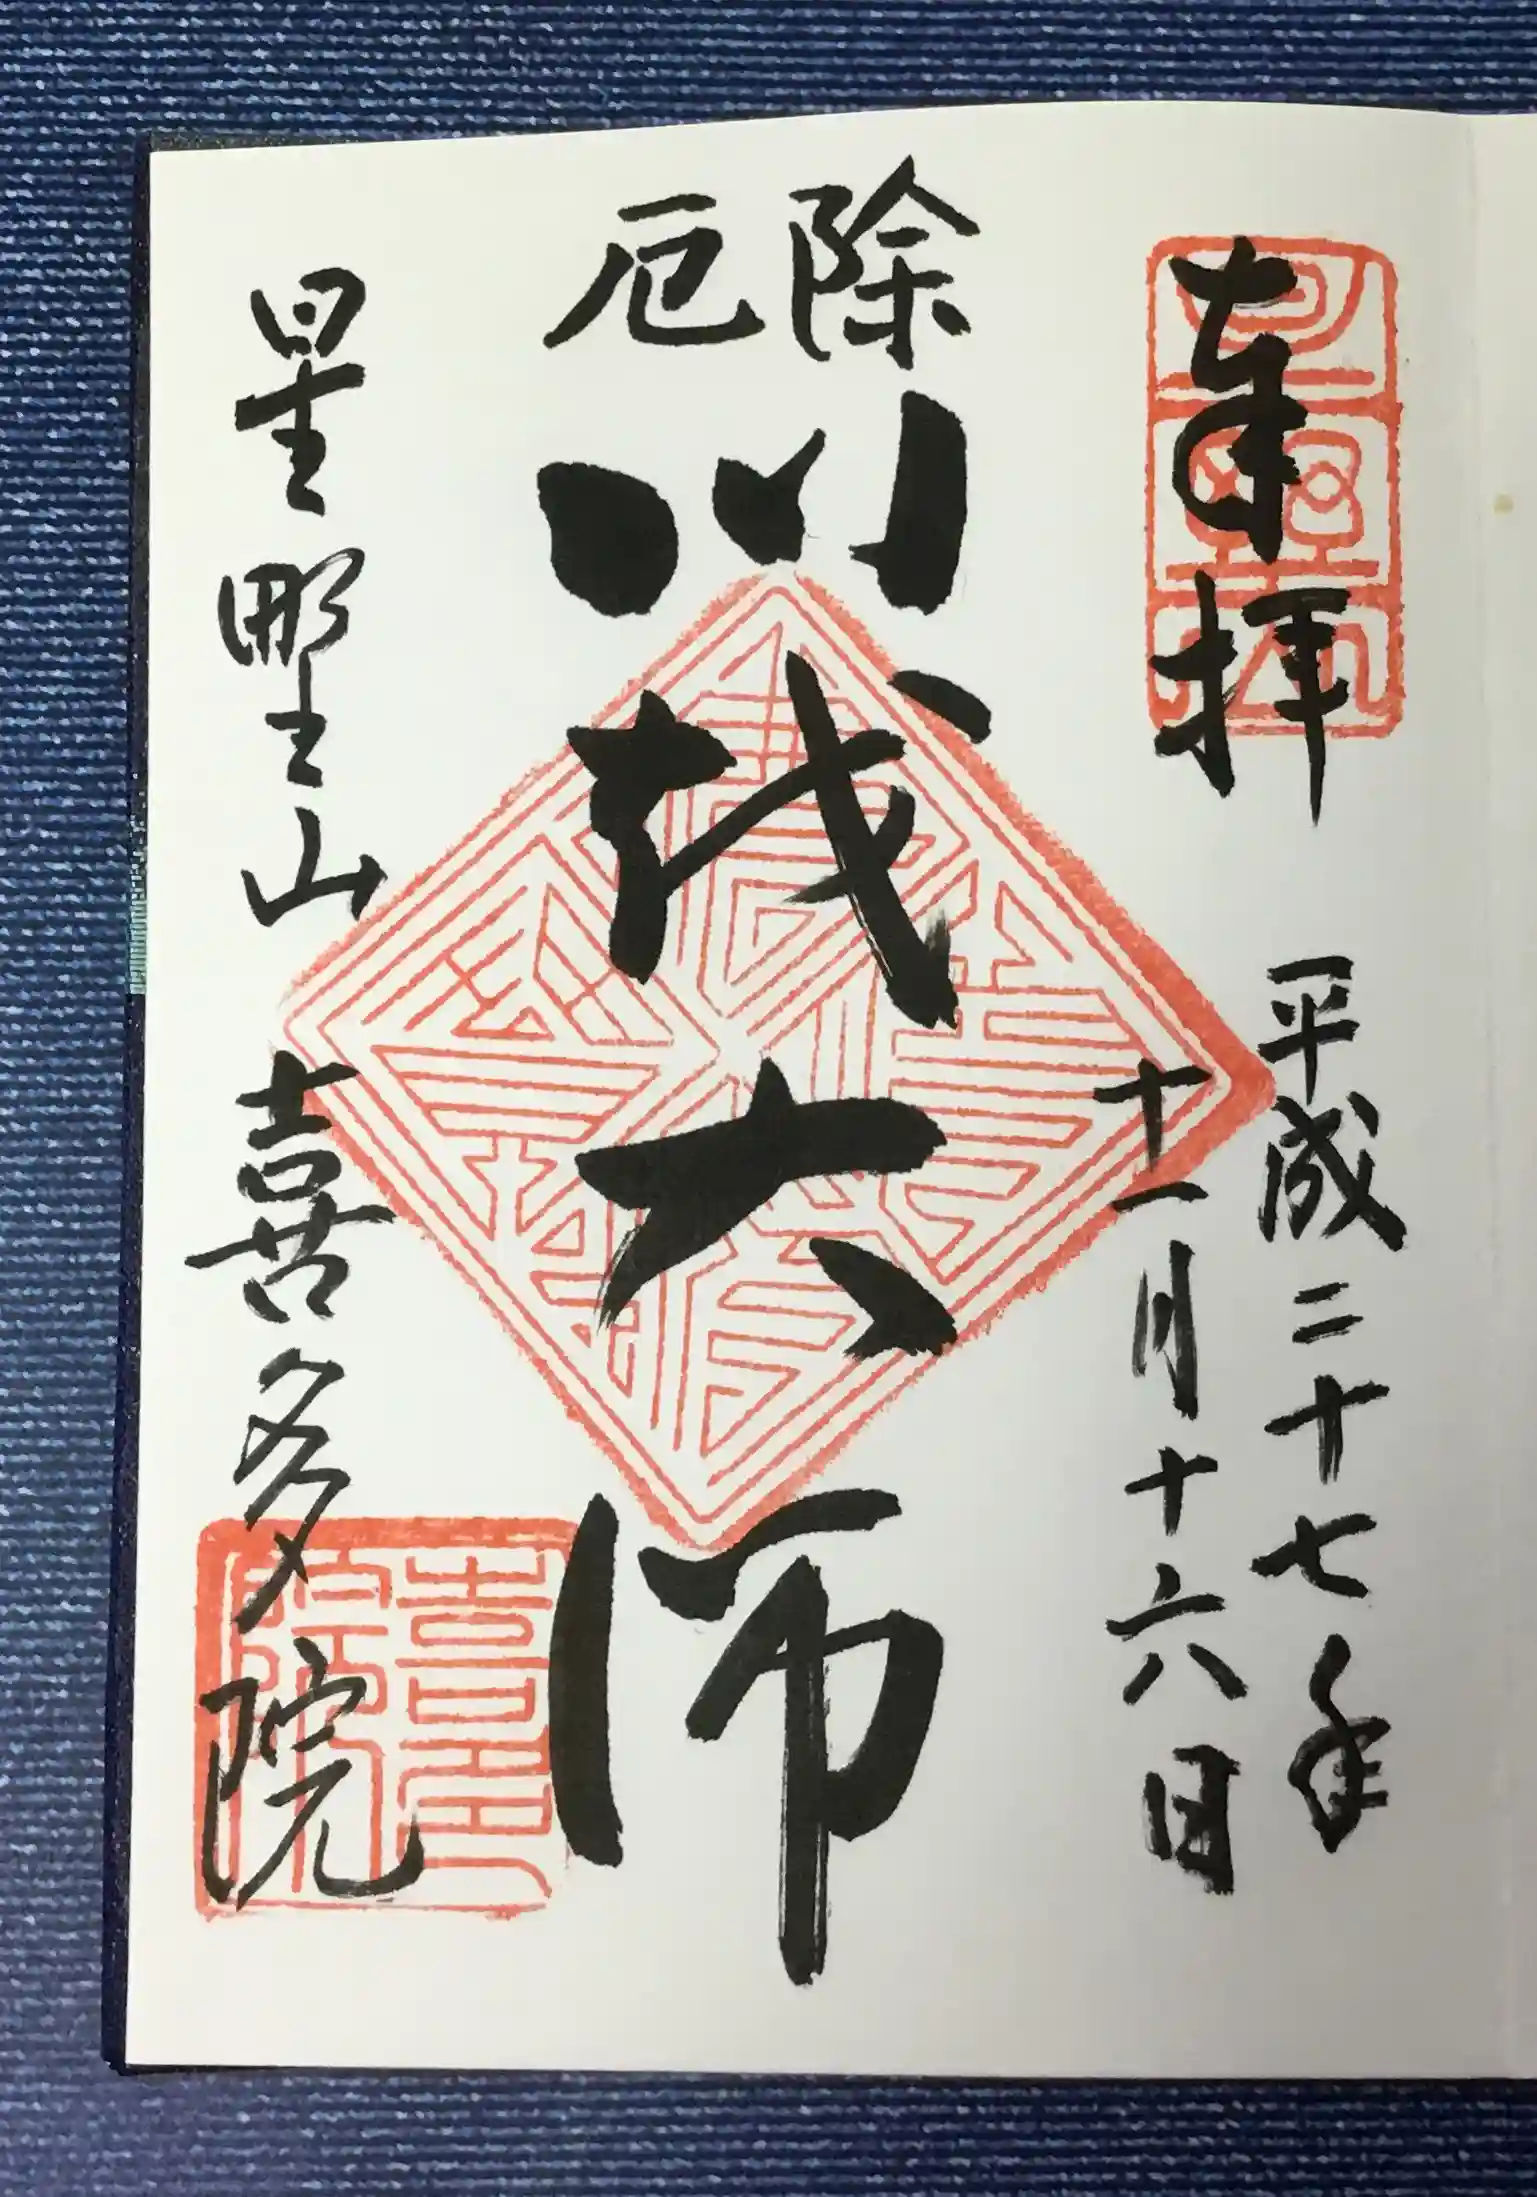 奉拝
平成二十七年
十一月十六日
厄除
川越大師
星野山 喜多院
喜多院